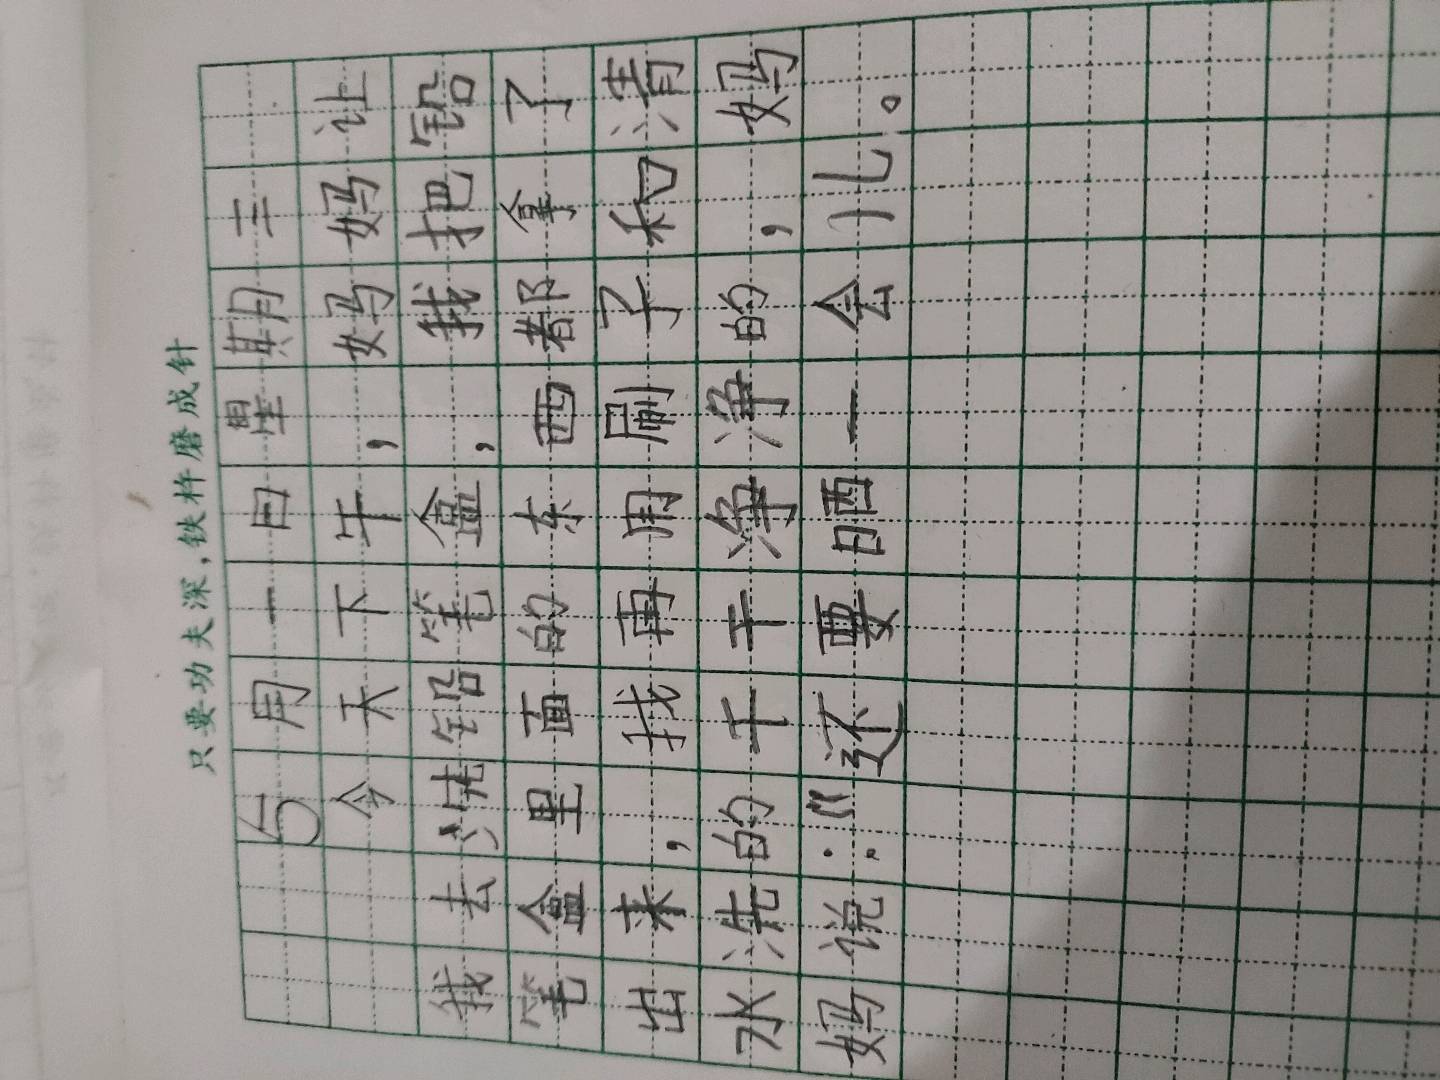 只要功夫深,铁杵磨成针
5用一日星期三
今天下午,妈妈让
我去洗铅笔盒,我把铅
笔盒里面的东西都拿了
出来,我再用刷子和清
水洗的干干净净的,妈
妈说:“还要晒一会儿。